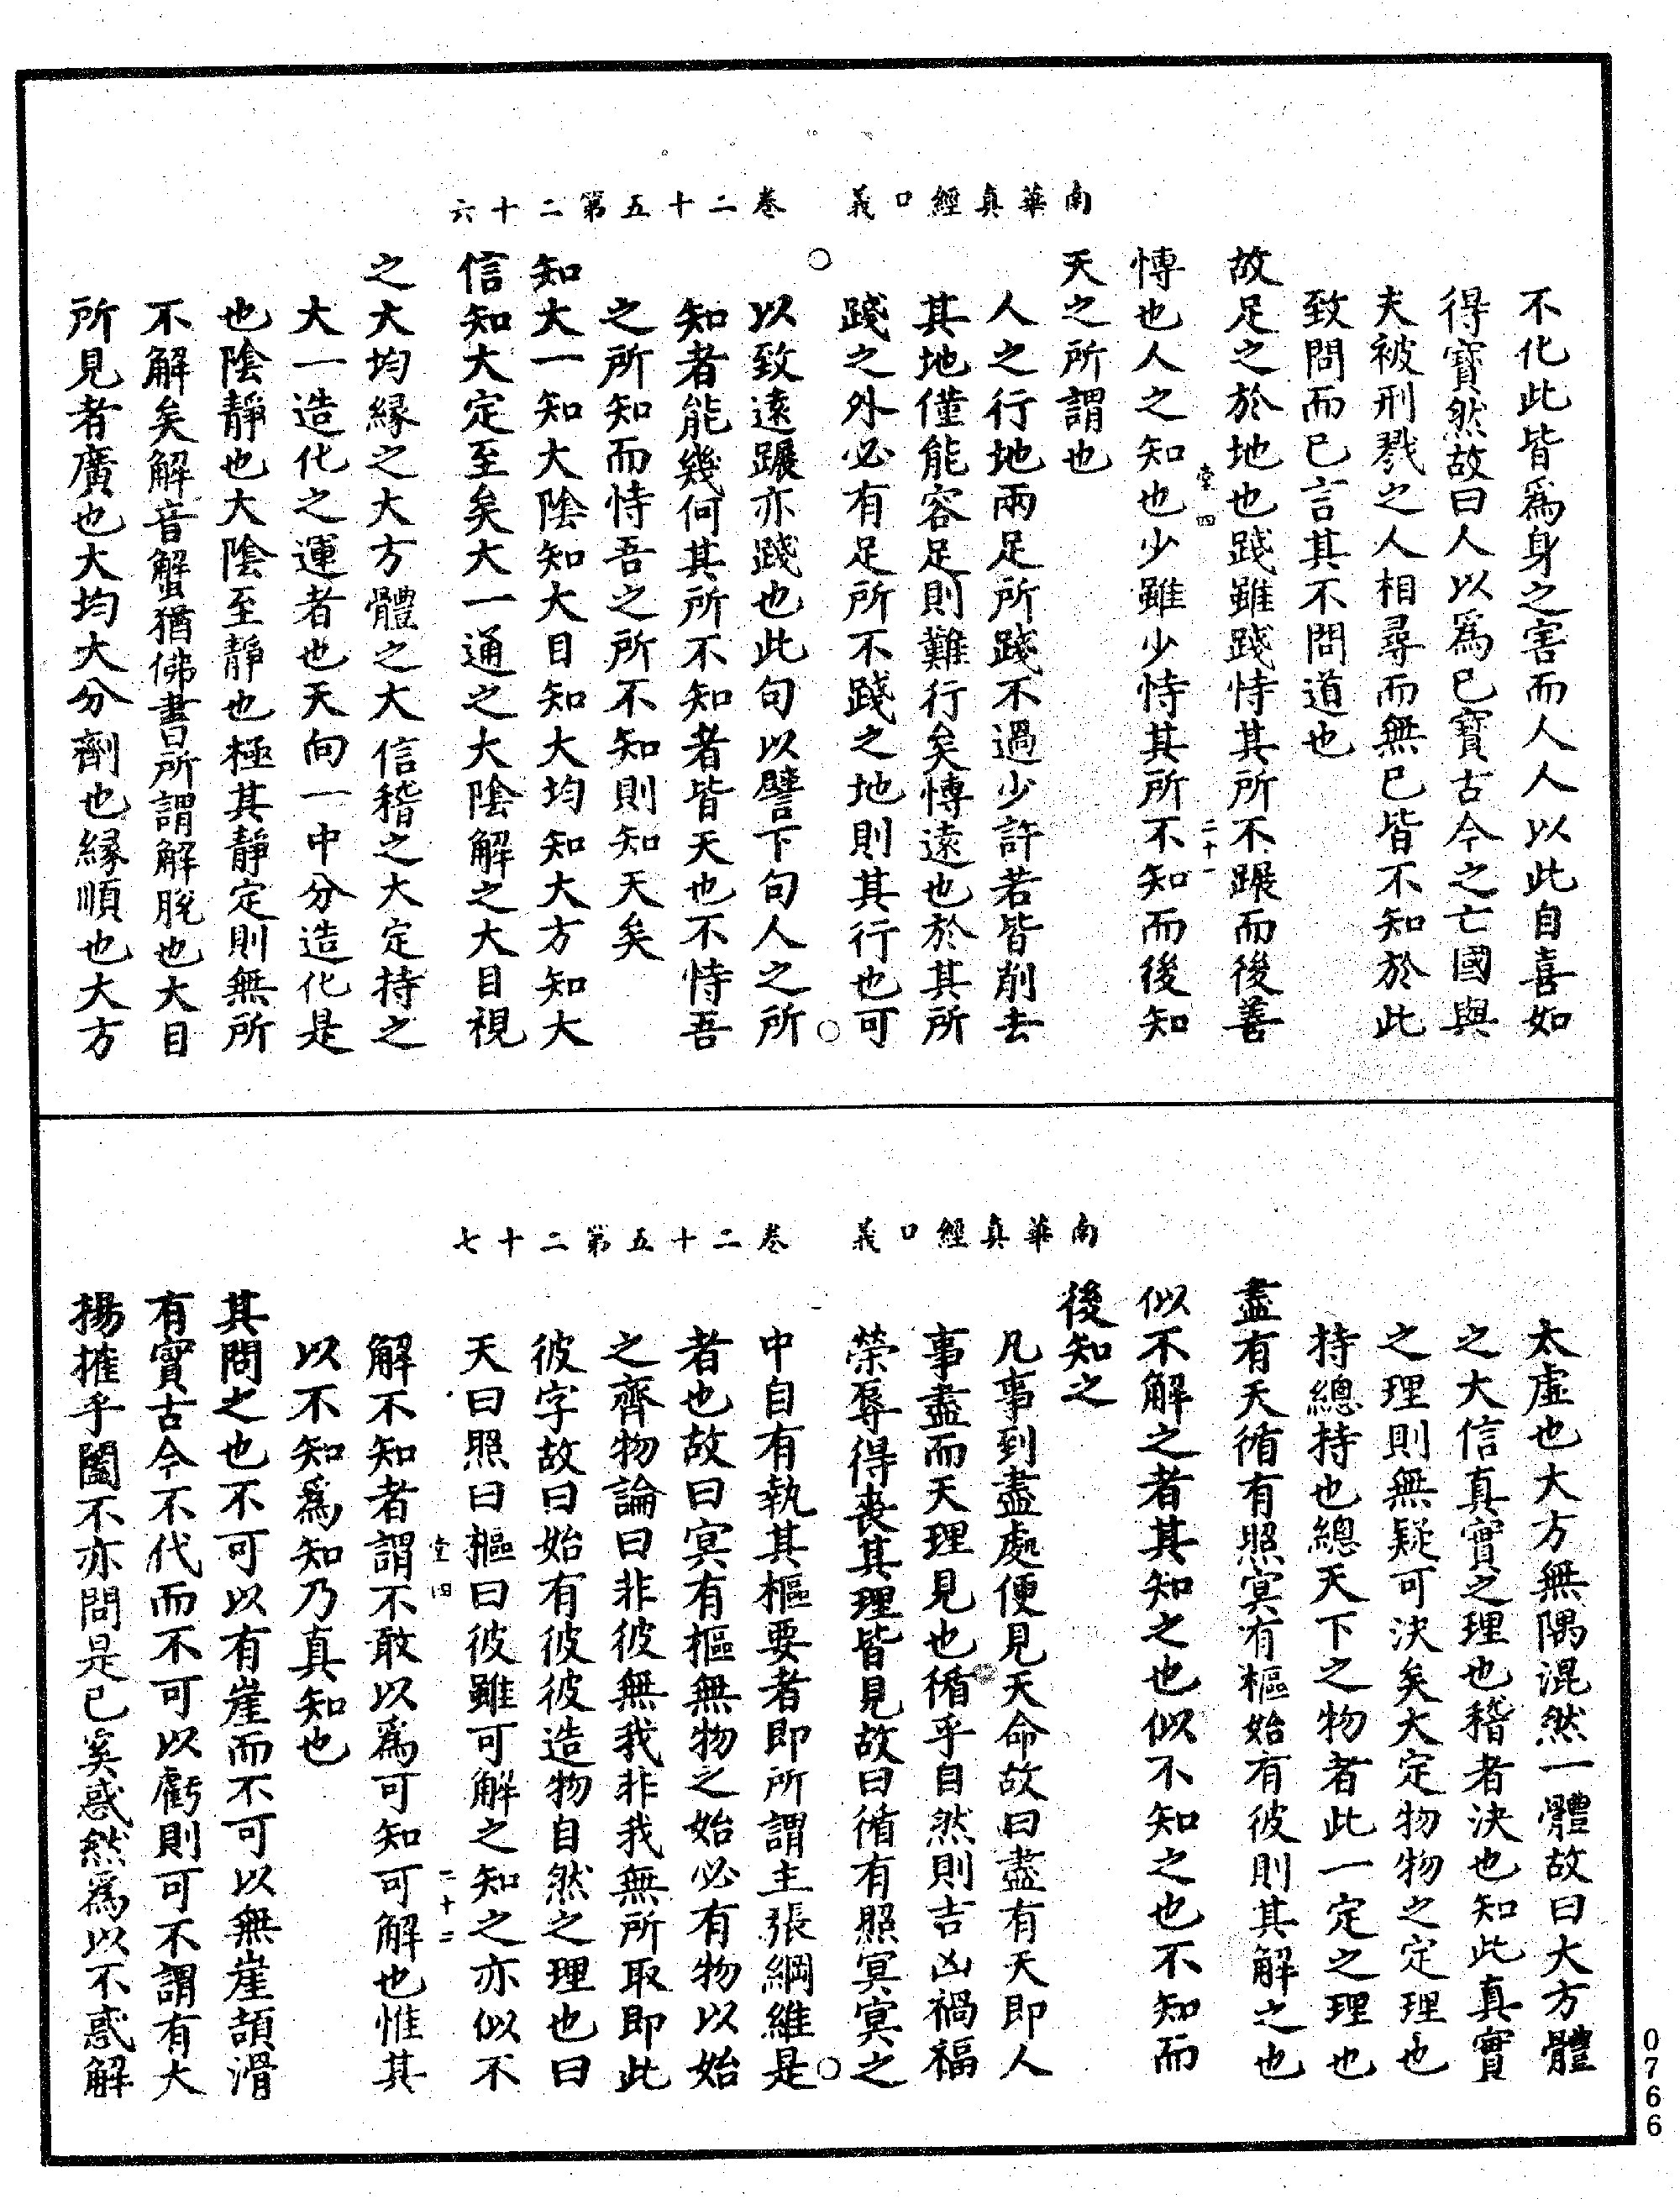 南華真經口義　卷二十五第二十六
不化此皆爲身之害而人人以此自喜如
得寶然故曰人以爲已寶古今之亡國與
夫被刑戮之人相尋而無已皆不知於此
致問而已言其不問道也
故足之於地也踐雖踐恃其所不蹍而後善
堂四　二十一
博也人之知也少雖少恃其所不知而後知
天之所謂也
人之行地兩足所踐不過少許若皆削去
其地僅能容足則難行矣博遠也於其所
踐之外必有足所不踐之地則其行也可
以致遠蹍亦踐也此句以譬下句人之所
知者能幾何其所不知者皆天也不恃吾
之所知而恃吾之所不知則知天矣
知大一知大陰知大目知大均知大方知大
信知大定至矣大一通之大陰解之大目視
之大均緣之大方體之大信稽之大定持之
大一造化之運者也天向一中分造化是
也陰靜也大陰至靜也極其靜定則無所
不解矣解音蟹猶佛書所謂解脫也大目
所見者廣也大均大分劑也緣順也大方
南華真經口義　卷二十五第二十七
太虛也大方無隅混然一體故曰大方體
之大信真實之理也稽者決也知此真實
之理則無疑可決矣大定物物之定理也
持總持也總天下之物者此一定之理也
盡有天循有照冥有樞始有彼則其解之也
似不解之者其知之也似不知之也不知而
後知之
凡事到盡處便見天命故曰盡有天即人
事盡而天理見也循乎自然則吉凶禍福
榮辱得喪其理皆見故曰循有照冥冥之
中自有執其樞要者即所謂主張綱維是
者也故曰冥有樞無物之始必有物以始
之齊物論曰非彼無我非我無所取即此
彼字故曰始有彼彼造物自然之理也曰
天曰照曰樞曰彼雖可解之知之亦似不
堂四　二十二
解不知者謂不敢以爲可知可解也惟其
以不知爲知乃真知也
其問之也不可以有崖而不可以無崖頡滑
有實古今不代而不可以虧則可不謂有大
揚搉乎闔不亦問是已奚惑然爲以不惑解
0766